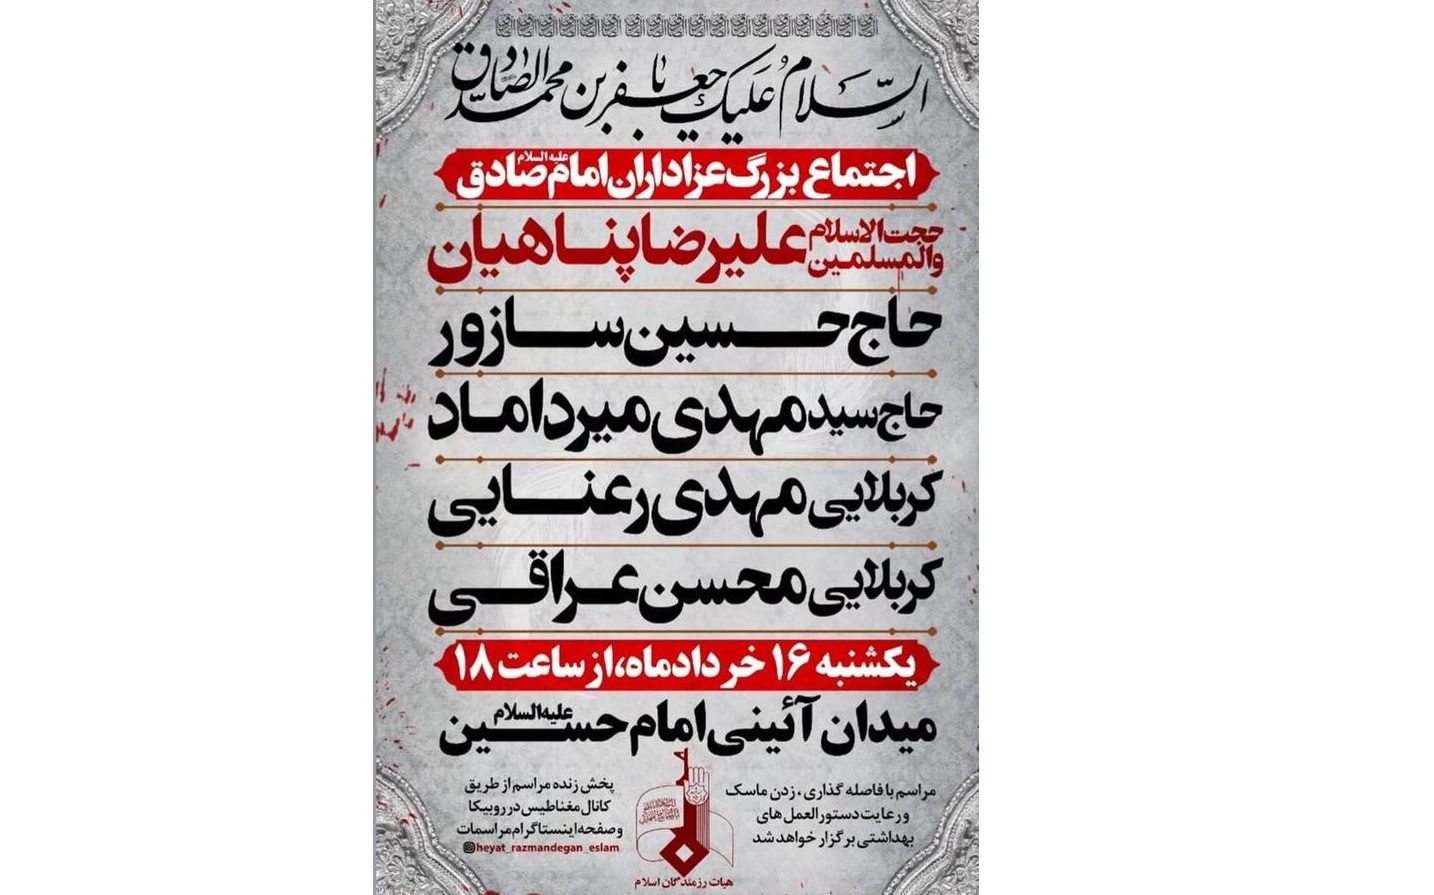 السلام علیک یا جعفر بن محمد الصادق
اجتماع بزرگ عزاداران امام صادق علیه السلام
حجت الاسلام والمسلمین علیرضا پناهیان
حاج حسین سازور
حاج سید مهدی میرداماد
کربلایی مهدی رعنایی
کربلایی محسن عراقی
یکشنبه ۱۶ خردادماه، از ساعت ۱۸
میدان آئینی امام حسین علیه السلام
مراسم با فاصله گذاری، زدن ماسک
و رعایت دستورالعمل های
بهداشتی برگزار خواهد شد
پخش زنده مراسم از طریق
کانال مغناطیس در روبیکا
و صفحه اینستاگرام مراسمات
heyat_razmandegan_eslam
هیات رزمندگان اسلام